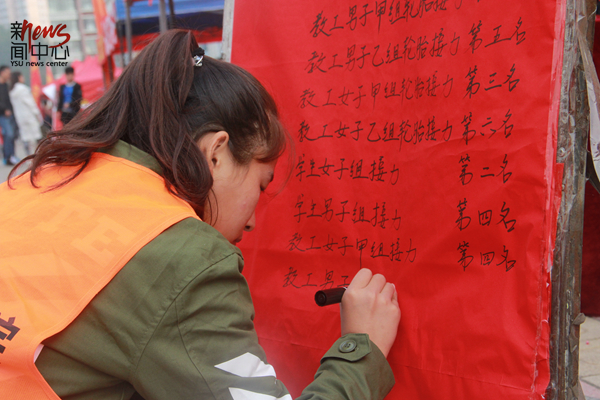 新news
闻中心
YSU news center
教工男子甲组轮胎接力
教工男子乙组轮胎接力 第五名
教工女子甲组轮胎接力 第三名
教工女子乙组轮胎接力 第六名
学生女子组接力 第二名
学生男子组接力 第四名
教工女子甲组接力 第四名
教工男子